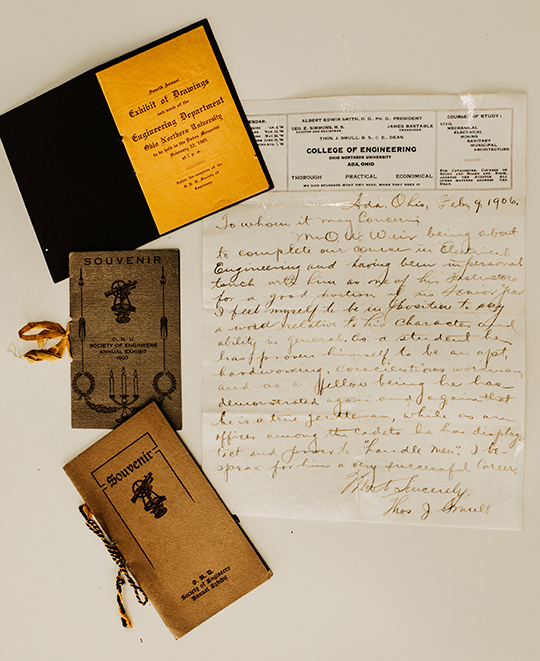 Fourth Annual
Exhibit of Drawings
and work of the
Engineering Department
Ohio Northern University
to be held in the Dukes Memorial
February 22, 1907.
at 7 p. m.
Under the auspices of the
O. N. U. Society of
Engineers
SOUVENIR
O. N. U.
SOCIETY OF ENGINEERS
ANNUAL EXHIBIT
1907
Souvenir
O. N. U.
Society of Engineers
Annual Exhibit
ALBERT EDWIN SMITH, D. D., PH. D., PRESIDENT
GEO. E. SIMMONS, M. S.
JAMES BASTABLE
TREASURER
THOS. J. SMULL, B. S., C. E., DEAN
COLLEGE OF ENGINEERING
OHIO NORTHERN UNIVERSITY
ADA, OHIO
THOROUGH PRACTICAL ECONOMICAL
WE GIVE STUDENTS WHAT THEY NEED, WHEN THEY NEED IT
COURSES OF STUDY:
CIVIL
MECHANICAL
ELECTRICAL
MINING
SANITARY
MUNICIPAL
ARCHITECTURE
Ada, Ohio, Feb, 9, 1906.
To whom it may Concern;
Mr. O. W. Weir being about
to complete our course in Electrical
Engineering and having been in personal
touch with him as one of his Instructors
for a good portion of his Senior Year
I feel myself to be in position to say
a word relative to his Character and
ability in general. as a student he
has proven himself to be an apt,
hardworking, conscientious workman,
and as a fellow being he has
demonstrated again and again that
he is a true gentleman, while as an
officer among the Cadets he has display
tact and power to "handle men". I be-
speak for him a very successful Career,
Most Sincerely,
Thos J Smull